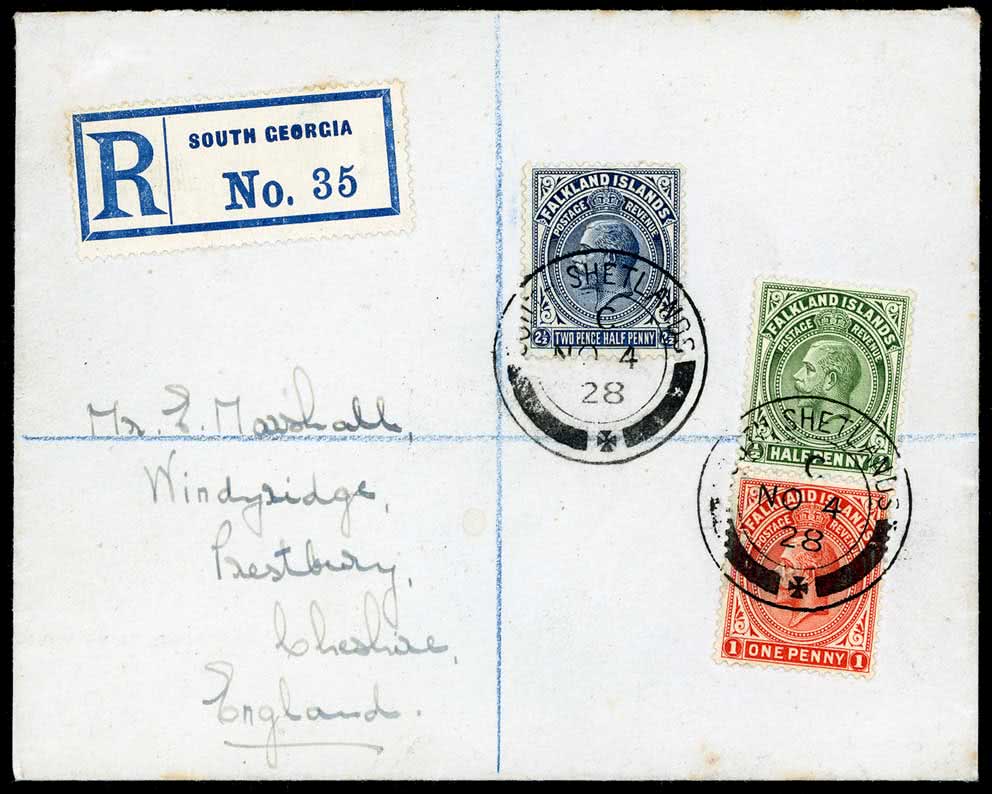 R SOUTH GEORGIA
No. 35
FALKLAND ISLANDS
POSTAGE REVENUE
2½ TWO PENCE HALF PENNY
SOUTH SHETLANDS
C
NO 4
28
FALKLAND ISLANDS
POSTAGE REVENUE
½ HALFPENNY
SOUTH SHETLANDS
C
NO 4
28
FALKLAND ISLANDS
POSTAGE REVENUE
1 ONE PENNY 1
Mr. E. Marshall,
Windyridge,
Prestbury,
Cheshire,
England.